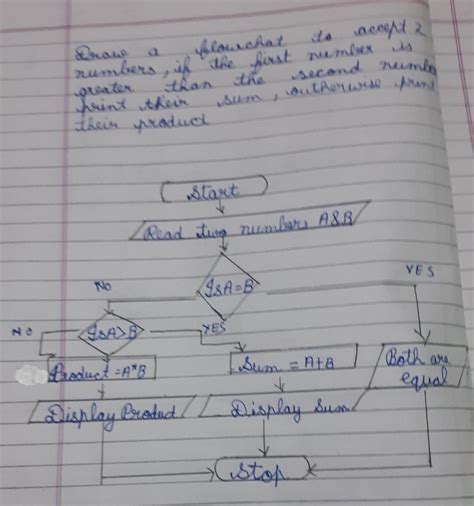 Draw a flowchat to accept 2
numbers, if the first number is
greater than the second number
print their sum, outherwise print
their product
Start
Read two numbers A&B
Is A=B
NO
YES
Is A>B
NO
YES
Product = A*B
Sum = A+B
Both are
equal
Display Product
Display Sum
Stop